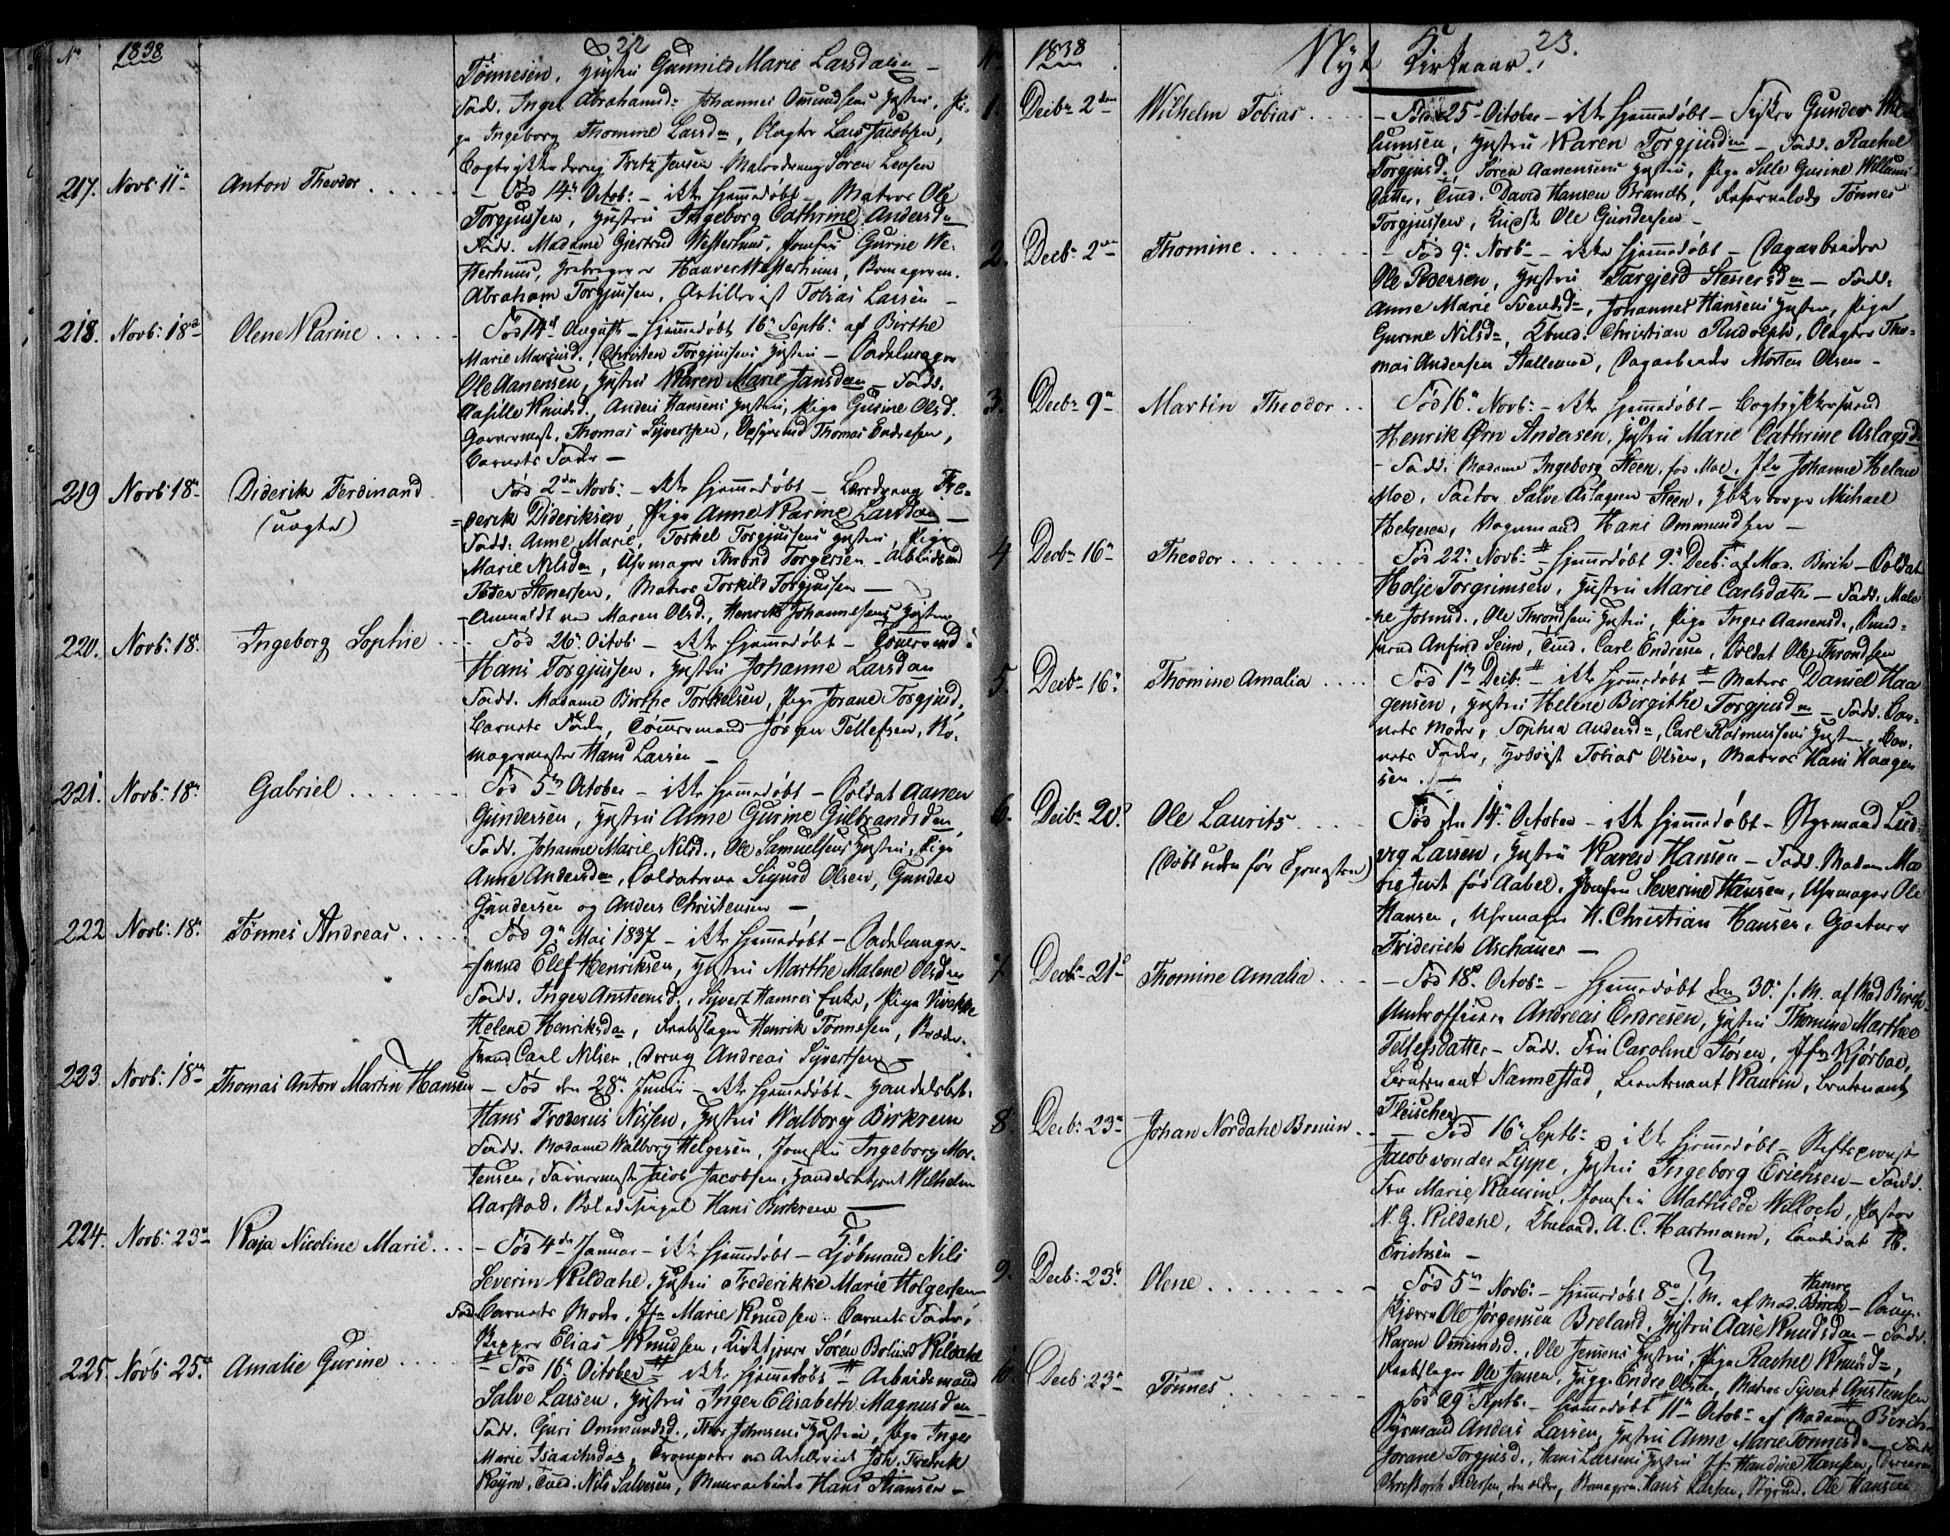 No 1838 22
Tönnesen, Hustru Gunnild Marie Larsdatter —
Fadd. Inger Abrahamsd: Johannes Omundsens Hustru, Pi-
ge Ingeborg Thomine Larsdn, Lars Jacobsen,
Fritz Jensen Malerdreng Sören Larsen
217. Novb: 11te Anton Theodor . . . . . — Fød 14de Octob: — ikke hjemmedøbt — Matros Ole
Torgjussen, Hustru Ingeborg Cathrine Andersdn
Fadd. Madame Gjertrud Westerhuus, Jomfru Gurine We-
sterhuus, Haaver Westerhuus,
Abraham Torgjussen, Artillerist Tobias Larsen —
218. Novb: 18de Olene Karine . . . . Fød 14de August — hjemmedøbt 16de Septb: af Birthe
Marie Mariusd., Christen Torgjussens Hustru — Sadelmager
Ole Aanensen, Hustru Karen Marie Jansdatter — Fadd.
Aasille Knudsd., Anders Hansens Hustru, Pige Gurine Olsd.
Garvermest. Thomas Syvertsen, Thomas Endresen,
Barnets Fader —
219 Novb: 18de Diderik Ferdinand Fød 2den Novb: — ikke hjemmedøbt — Fre-
(uægte) derik Dideriksen, Pige Anne Karine Larsdatter —
Fadd: Anne Marie, Torkel Torgjussens Hustru, Pige
Marie Nilsdn, Uhrmager Thrond Torgersen, Arbeidsmd
Peder Stenersen, Matros Torkild Torgjussen —
— Anmeldt ved Maren Olsd., Henrik Johannesens Hustru
220. Novb: 18. Ingeborg Sophie . . — Fød 26. Octob — ikke hjemmedøbt — Tömmermd
Hans Torgjussen, Hustru Johanne Larsdatter
Fadd. Madame Birthe Torkelsen, Pige Jorane Torgjusd.
Barnets Fader, Tömmermand Jörgen Tellefsen, Sko-
magermester Hans Larsen —
221. Novb: 18de Gabriel . . . . . Fød 5te October — ikke hjemmedøbt — Soldat Aanen
Gundersen, Hustru Anne Gurine Gulbrandsdtn
Fadd. Johanne Marie Nilsd., Ole Samuelsens Hustru, Pige
Anne Andersdn, Soldaterne Sigurd Olsen, Gunder
Gundersen og Anders Christensen —
222 Novb: 18de Tönnes Andreas . . . . Fød 9de Mai 1837 — ikke hjemmedøbt — Sadelmager-
svend Elef Henriksen, Hustru Marthe Malene Olsdn
Fadd. Inger Ansteensd., Syvert Hamres Enke, Pige Vivikke
Helene Henriksdn, Henrik Tönnesen,
Carl Nilsen, Dreng Andreas Syvertsen —
223. Novb: 18de Thomas Anton Martin Hansen — Fød den 28de Junii — ikke hjemmedøbt — Handelsb.
Hans Froderus Nissen, Hustru Walborg Birkrem
Fadd. Madame Walborg Helgesen, Jomfru Ingeborg Mor-
tensen, Farvermest. Jacob Jacobsen, Handelsbetjent Wilhelm
Aarstad, Hans Birkrem —
224. Novb: 23de Kaja Nicoline Marie . . . — Fød 4de Januar — ikke hjemmedøbt — Kjöbmand Nils
Severin Kildahl, Hustru Frederikke Marie Holgersen
Fad. Barnets Moder, Jfr Marie Knudsen. Barnets Fader,
Skipper Elias Knudsen, Sören Bolius Kildahl
225. Novb: 25de Amalie Gurine . . . . — Fød 16de October — ikke hjemmedøbt — Arbeidsmand
Salve Larsen, Hustru Inger Elisabeth Magnusdn
Fadd. Guri Ommundsd., Johnsens Hustru, Pige Inger
Marie Isaachsdn, Trompeter ved Artilleriet Joh. Fredrik
Kayrn, Tmd. Nils Salvesen, Muurarbeider Hans Hansen —
N. 1838 Nyt Kirkeaar. 23.
1. Decbr 2den Wilhelm Tobias . . . . — Fød 25 October — ikke hjemmedøbt — Fisker Gunder
Hustru Karen Torgjusdn — Fadd. Rachel
Torgjusd. Sören Aanensens Hustru, Pige Sille Gurine Williams-
datter, Tmd. David Hansen Brandt, Tönnes
Torgjussen, Ole Gundersen —
2. Decbr 2den Thomine . . . . . . — Fød 9de Novb: — ikke hjemmedøbt — Dagarbeider
Ole Pedersen, Hustru Targjerd Stenersdn — Fadd:
Anne Marie Svendsdn, Johannes Hansens Hustru, Pige
Gurine Nilsdn, Christian Rudolph, Tho-
mas Andersen Dagarbeider Morten Olsen —
3. Decbr 9de Martin Theodor . . Fød 16de Novb: — ikke hjemmedøbt — Bogtrykkersvend
Henrik Ørn Andersen, Hustru Marie Cathrine Aslagsd
— Fadd: Madame Ingeborg Steen, fød Moe, Jfr Johanne Helene
Moe, Factor Salve Aslagsen Steen, Michael
Helgesen, Vognmand Hans Ommundsen —
4 Decbr 16de Theodor . . . . . . . Fød 22de Novb: — hjemmedøbt 9de Decb: af Mad. Birch — Soldat
Holje Torgrimsen, Hustru Marie Carlsdatter — Fadd: Male-
ne Johnsd., Ole Throndsens Hustru, Pige Inger Aanensd.,
Anfind Seim, Tmd. Carl Endresen, Soldat Ole Throndsen
5. Decbr 16de Thomine Amalia . . . . Fød 1ste Decb: — ikke hjemmedøbt — Matros Daniel Haa-
gensen, Hustru Helene Birgithe Torgjusdn — Fadd. Bar-
nets Moder, Sophia Andersdn, Carl Rasmussens Hustru, Bar-
nets Fader, Tobias Olsen, Matros Hans Haagen-
sen. —
6. Decbr 20de Ole Laurits . . . . Fød den 14de October — ikke hjemmedøbt — Styrmand Lud-
(Døbt uden for Tjenesten) vig Larsen, Hustru Karen Hansen — Fadd. Madm Ma-
rie fød Aabel, Jomfru Severine Hansen, Uhrmager Ole
Hansen, Uhrmager H. Christian Hansen, Gartner
Friderich Aschauer —
7. Decbr 21de Thomine Amalia . . . — Fød 18de Octob: — hjemmedøbt den 30te s. M. af Mad Birch
Underofficier Andreas Endresen, Hustru Thomine Marthea
Tellefsdatter — Fadd. Fru Caroline Støren, Jfr Kjörboe,
Lieutenant Nannestad, Lieutenant Kaurin, Lieutenant
Fleischer
8. Decb: 23de Johan Nordahl Bruun . . — Fød 16de Septb: — ikke hjemmedøbt — Stiftsprovst
Jacob von der Lippe, Hustru Ingeborg Erichsen — Fadd.
Fru Marie Kaurin, Jomfru Mathilde Willoch, Pastor
N. G. Kildahl, Kbmand. A. C. Hartmann, Candidat Th.
Erichsen —
9. Decb: 23de Olene . . . . . . . — Fød 5te Novb: — hjemmedøbt 8de s. M. af Mad. Birch Hamre —
Ole Jörgensen Breland, Hustru Aase Knudsdn — Fadd.
Karen Ommundsd., Ole Jensens Hustru, Pige Rachel Knudsdn,
Ole Jensen, Endre Olsen, Matros Syvert Anstensen
10. Decb: 23de Tönnes . . . . . . Fød 29de Septb. — hjemmedøbt 11te Octob: af Madame Birch
Styrmand Anders Larsen, Hustru Anne Marie Tönnesd. — Fadd.
Jorane Torgjusd., Hans Larsens Hustru, Jfr Handine Hansen,
Christoph Pedersen, den ældre, Hans Larsen, Styrmd. Ole Hansen